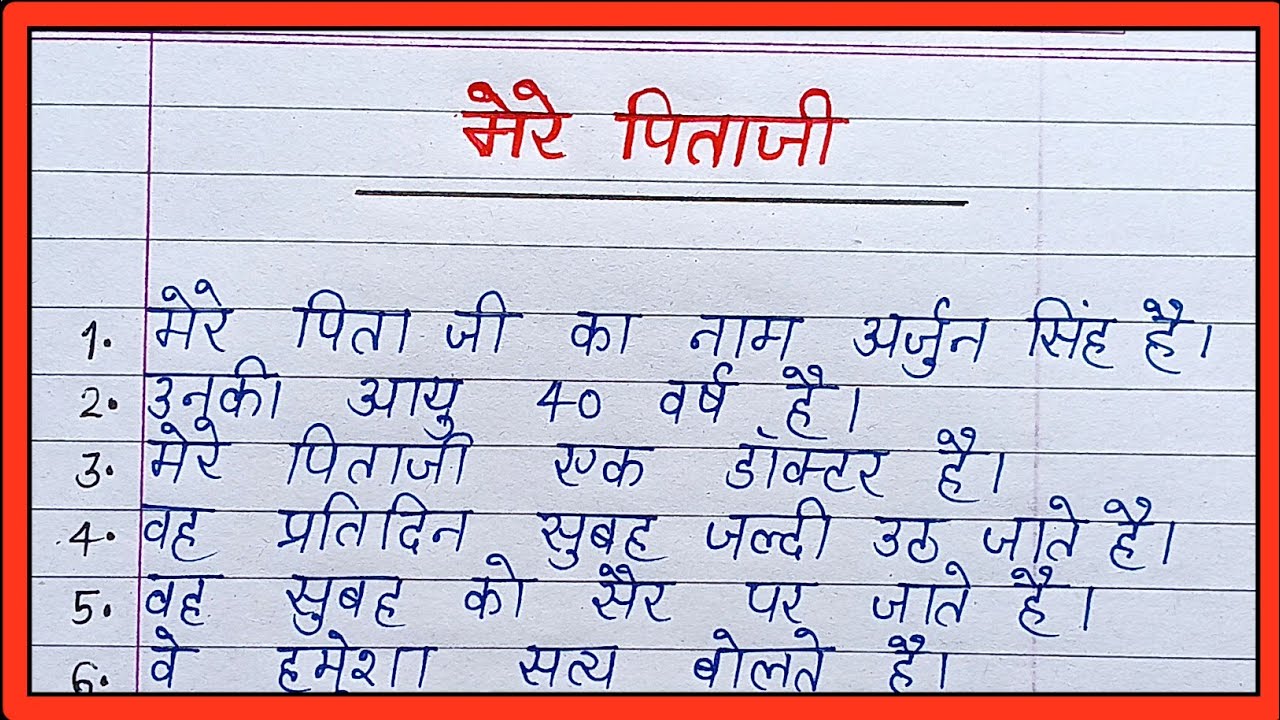 मेरे पिताजी
1. मेरे पिता जी का नाम अर्जुन सिंह है।
2. उनकी आयु 40 वर्ष है।
3. मेरे पिताजी एक डॉक्टर है।
4. वह प्रतिदिन सुबह जल्दी उठ जाते है।
5. वह सुबह को सैर पर जाते है।
6. वे हमेशा सत्य बोलते है।